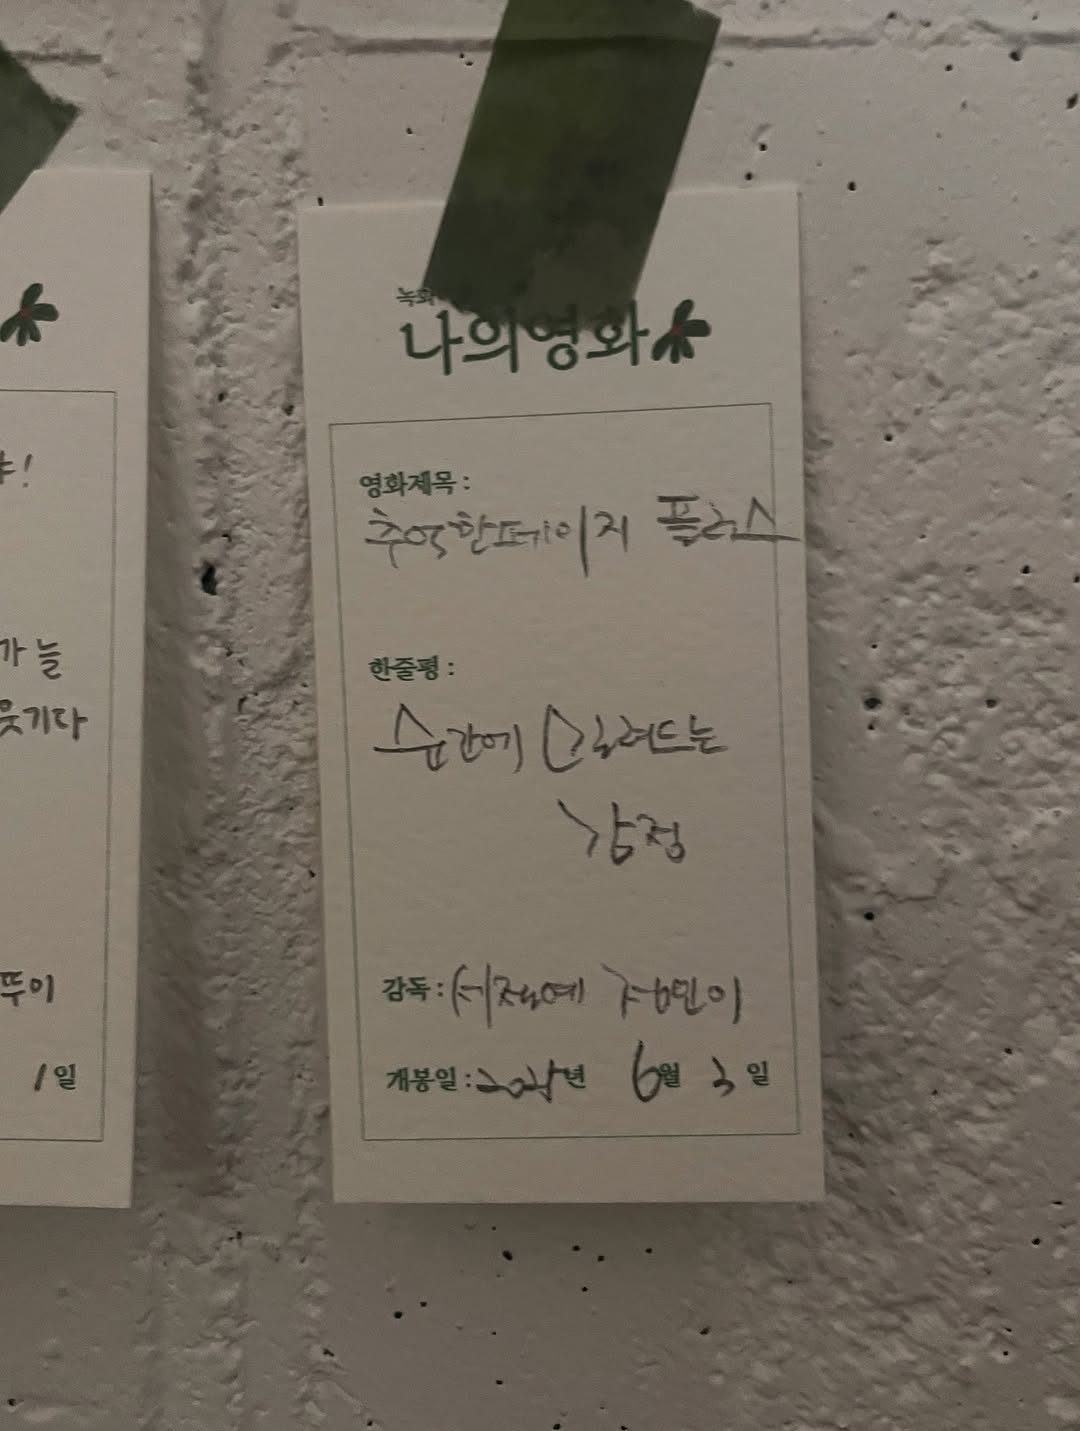 나의영화
영화제목:
추억한페이지 플러스
한줄평:
순간에 실려드는
감정
감독: 정민이
개봉일: 년 6월 3일
가 늘
웃기다
뚜이
1일